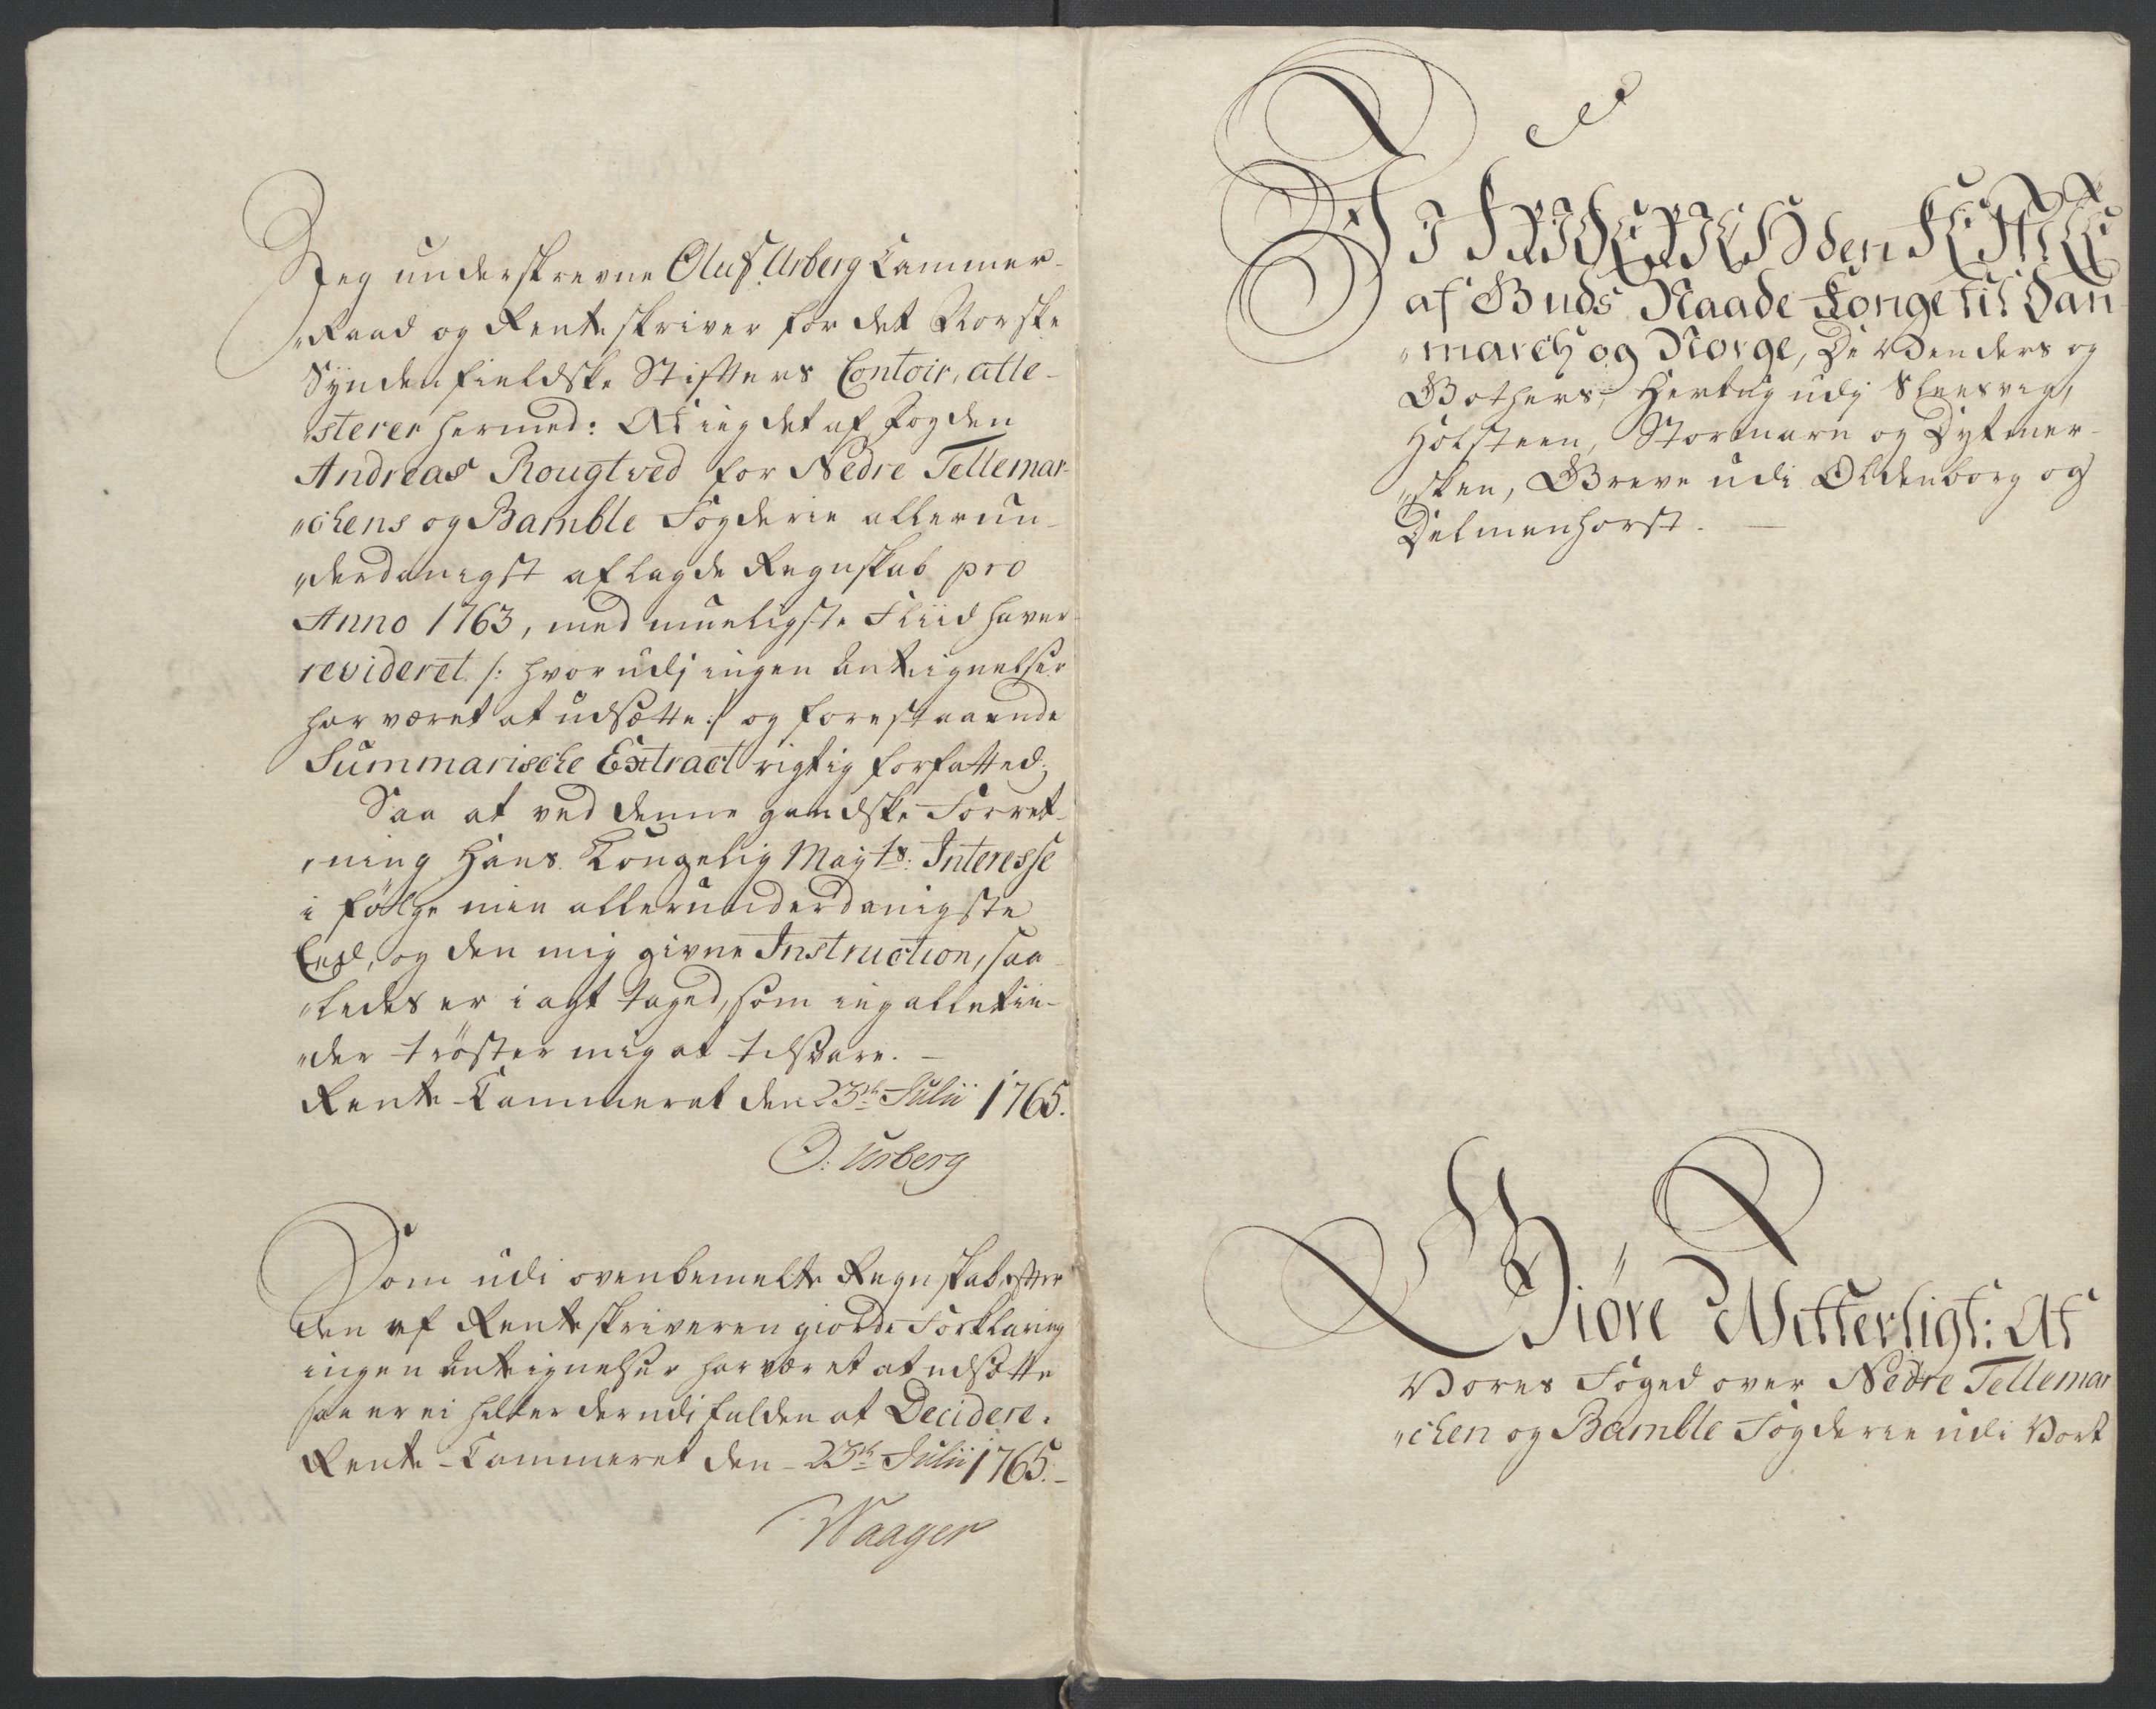 Jeg underskrevne Oluf Urberg Cammer-
„Raad og Renteskriver for det Norske
Syndenfieldske Stifters Contoir, atte-
„sterer hermed: At ieg det af Fogden
Andreas Rougtved for Nedre Tellemar-
„chens og Bamble Fogderie allerun-
„derdanigst aflagde Regnskab pro
Anno 1763, med mueligste Fliid haver
revideret /: hvorudj ingen Anteignelser
har været at udsætte :/ og forestaaende
Summarische Extract rigtig forfatted;
Saa at ved denne gandske Forret-
„ning Hans Kongelig Mayts: Interesse
i følge min allerunderdanigste
Eed, og den mig givne Instruction, saa-
„ledes er i agt taged, som ieg alletii-
„der trøster mig at tilsvare. —
Rente-Cammeret den 23de Julii 1765.
O: Urberg
Som udi ovenbemelte Regnskab efter
den af Renteskriveren giorde Forklaring
ingen Anteignelser har været at udsætte
saa er ei heller derudi falden at Decidere.
Rente-Cammeret den 23de Julii 1765.-
Waager
Vi FRIDERICH den FEMTE
af Guds Naade Konge til Dan
„march og Norge, De Venders og
Gothers, Hertug udj Slesvig,
Holsteen, Stormarn og Dytmer-
„sken, Greve udi Oldenborg og
Delmenhorst. —
Giøre Witterligt: At
Vores Foged over Nedre Tellemar
„chen og Bamble Fogderie udi Vort